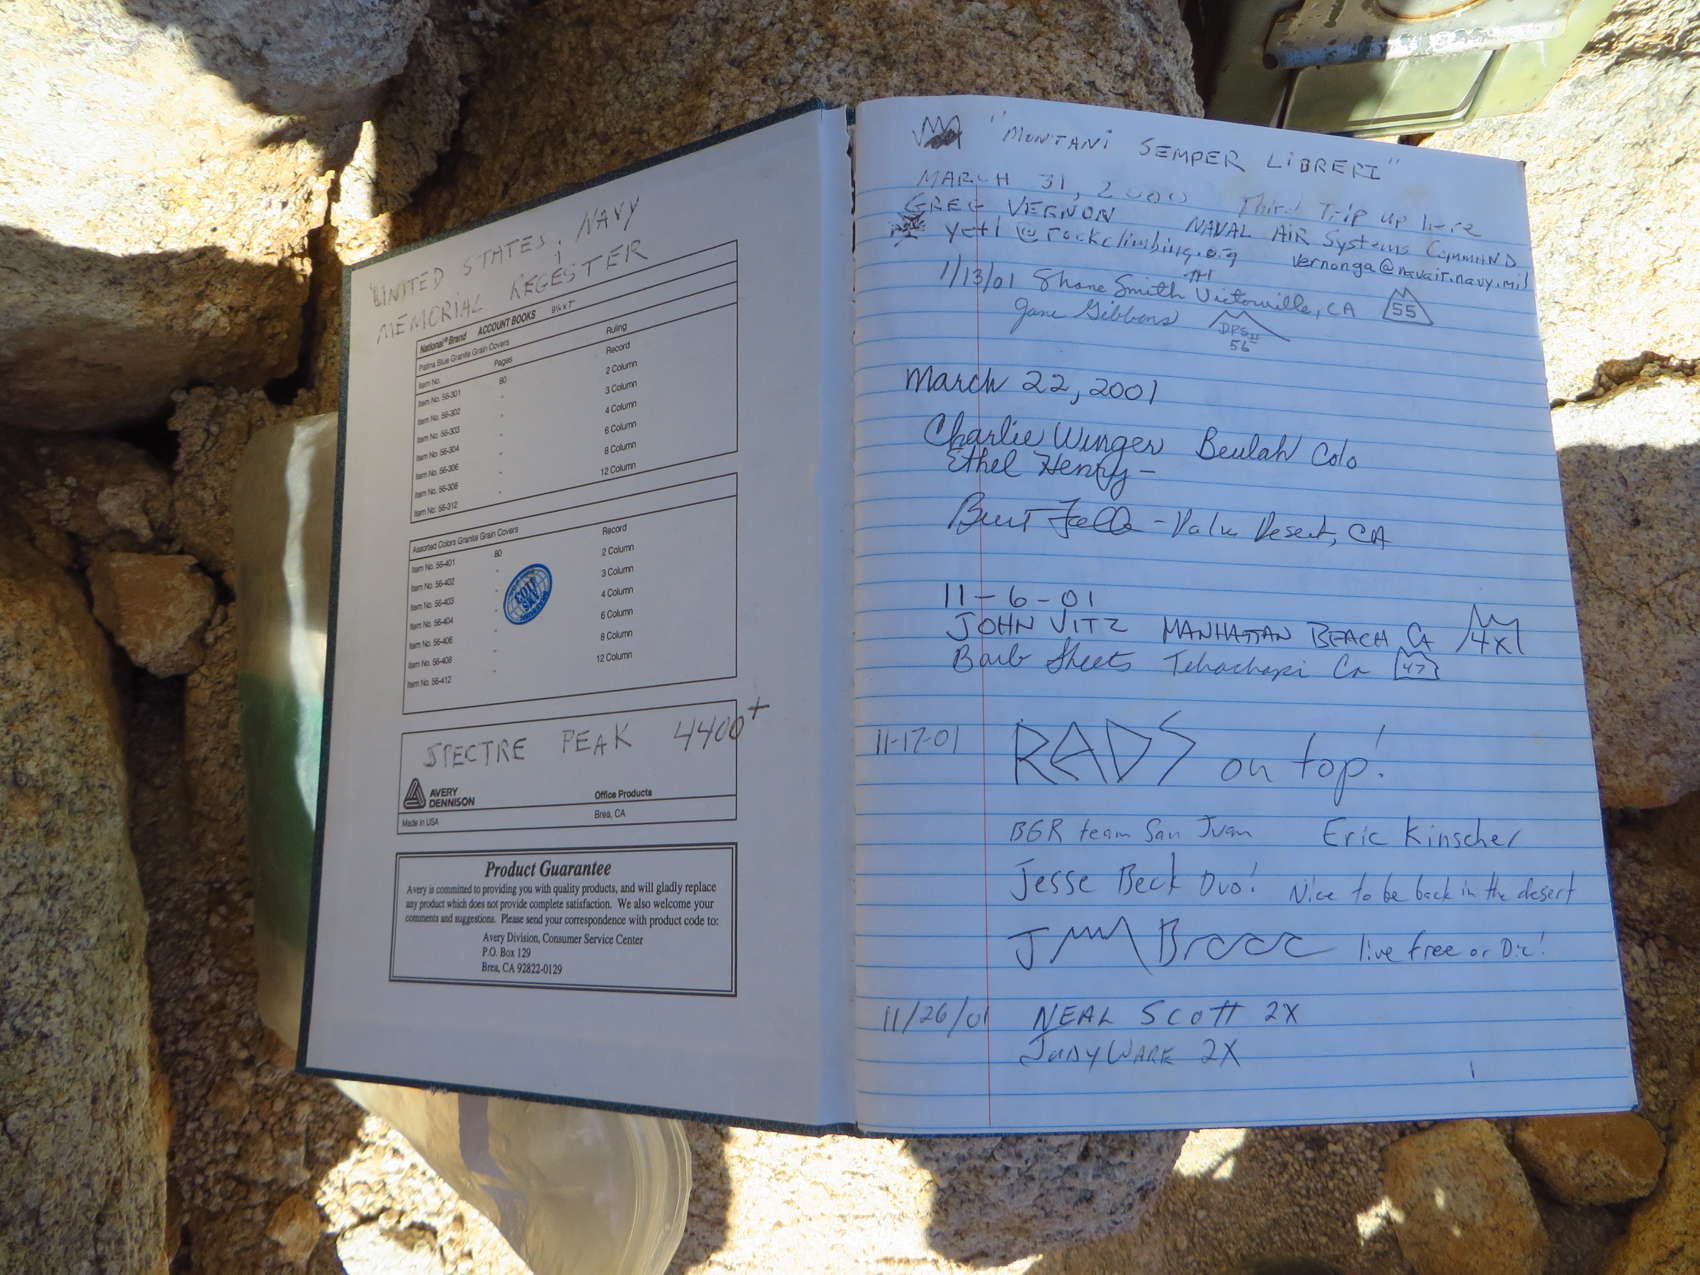 UNITED STATES NAVY
MEMORIAL REGESTER
National® Brand ACCOUNT BOOKS 9¼ x 7
Patina Blue Granite Grain Covers
Item No. Pages Ruling
Item No. 56-301 80 Record
Item No. 56-302 " 2 Column
Item No. 56-303 " 3 Column
Item No. 56-304 " 4 Column
Item No. 56-306 " 6 Column
Item No. 56-308 " 8 Column
Item No. 56-312 " 12 Column
Assorted Colors Granite Grain Covers
Item No. 56-401 80 Record
Item No. 56-402 " 2 Column
Item No. 56-403 " 3 Column
Item No. 56-404 " 4 Column
Item No. 56-406 " 6 Column
Item No. 56-408 " 8 Column
Item No. 56-412 " 12 Column
SPECTRE PEAK 4400+
AVERY
DENNISON
Office Products
Made in USA Brea, CA
Product Guarantee
Avery is committed to providing you with quality products, and will gladly replace
any product which does not provide complete satisfaction. We also welcome your
comments and suggestions. Please send your correspondence with product code to:
Avery Division, Consumer Service Center
P.O. Box 129
Brea, CA 92822-0129
"MONTANI SEMPER LIBRERI"
MARCH 31, 2000 Third Trip up here
GREG VERNON NAVAL AIR Systems COMMAND
yeti@rockclimbing.org vernonga@navair.navy.mil
1/13/01 Shane Smith Victorville, CA 55
Jane Gibbons DPS
56
March 22, 2001
Charlie Winger Beulah Colo
Ethel Henry -
Burt Falk - Palm Desert, CA
11-6-01
JOHN VITZ MANHATTAN BEACH CA 4X
Barb Sheets Tehachapi Ca 47
11-17-01 RADS on top!
BGR team San Juan Eric Kinscher
Jesse Beck Duo! Nice to be back in the desert
live free or Die!
11/26/01 NEAL Scott 2X
Judy WARE 2X
1